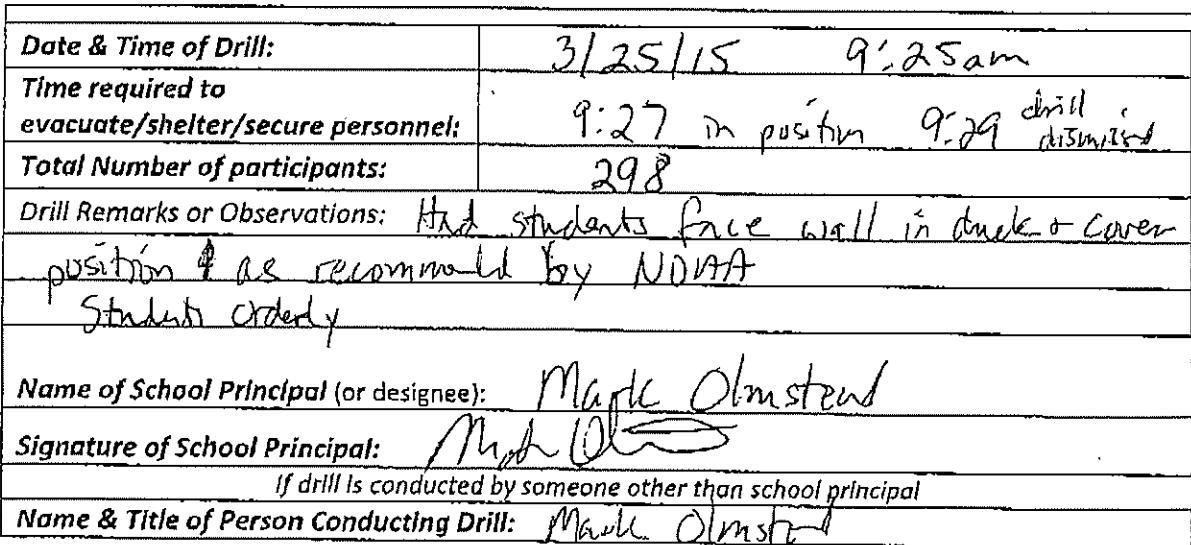 Date & Time of Drill: 3/25/15 9:25am
Time required to
evacuate/shelter/secure personnel: 9:27 in position 9:29 drill dismissed
Total Number of participants: 298
Drill Remarks or Observations: Had students face wall in duck + cover
position as recommend by NOAA
Students orderly
Name of School Principal (or designee): Mark Olmstead
Signature of School Principal:
If drill is conducted by someone other than school principal
Name & Title of Person Conducting Drill: Mark Olmstead